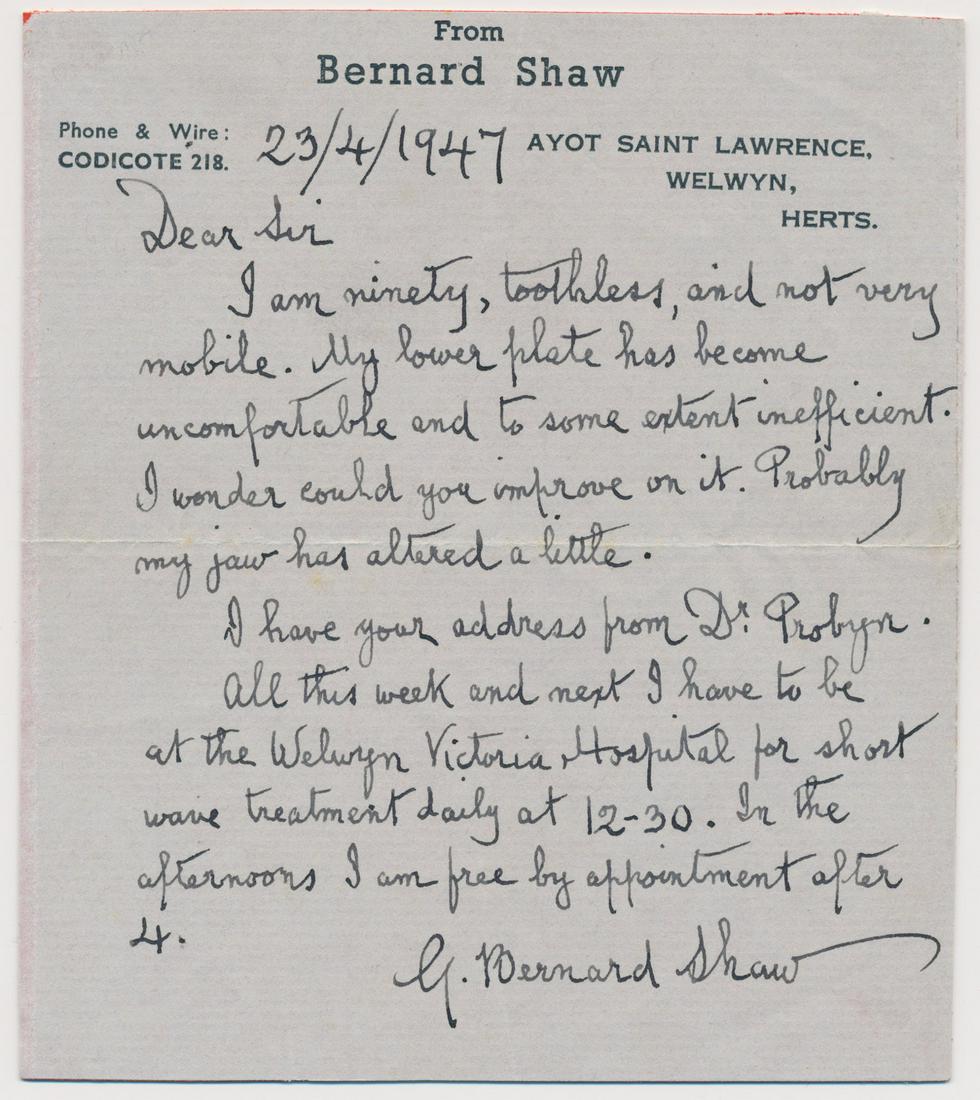 From
Bernard Shaw
Phone & Wire:
CODICOTE 218.
23/4/1947
AYOT SAINT LAWRENCE,
WELWYN,
HERTS.
Dear Sir
I am ninety, toothless, and not very
mobile. My lower plate has become
uncomfortable and to some extent inefficient.
I wonder could you improve on it. Probably
my jaw has altered a little.
I have your address from Dr. Probyn.
All this week and next I have to be
at the Welwyn Victoria Hospital for short
wave treatment daily at 12-30. In the
afternoons I am free by appointment after
4.
G. Bernard Shaw